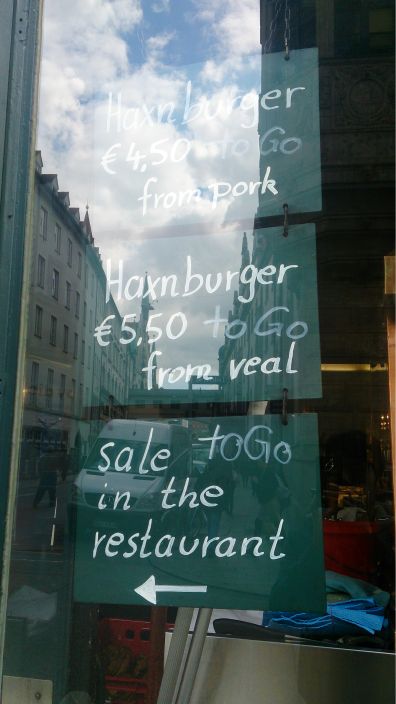 Haxnburger
€4,50 to Go
from pork
Haxnburger
€5,50 to Go
from veal
sale to Go
in the
restaurant